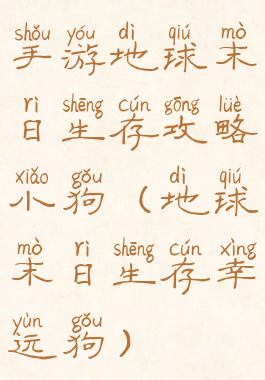 shǒu yóu dì qiú mò
手游地球末
rì shēng cún gōng lüè
日生存攻略
xiǎo gǒu dì qiú
小狗（地球
mò rì shēng cún xìng
末日生存幸
yùn gǒu
运狗）